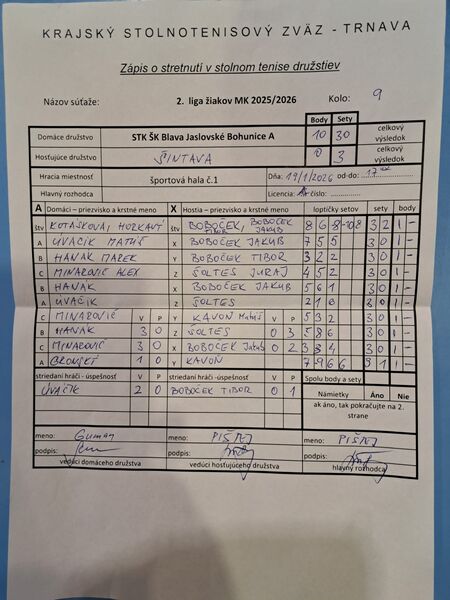 KRAJSKÝ STOLNOTENISOVÝ ZVÄZ - TRNAVA
Zápis o stretnutí v stolnom tenise družstiev
Názov súťaže: 2. liga žiakov MK 2025/2026 Kolo: 9
Body Sety
Domáce družstvo STK ŠK Blava Jaslovské Bohunice A 10 30 celkový výsledok
Hosťujúce družstvo ŠINTAVA 0 3 celkový výsledok
Hracia miestnosť športová hala č.1 Dňa: 19/1/2026 od-do: 17
Hlavný rozhodca Licencia: číslo:
A Domáci - priezvisko a krstné meno X Hostia - priezvisko a krstné meno loptičky setov sety body
štv KOTÁSKOVÁ, HORKAVÝ štv BOBOČEK TIBOR, BOBOČEK JAKUB 8 6 -8 -10 8 3 2 1 -
A ÚVAČIK MATÚŠ X BOBOČEK JAKUB 7 5 5 3 0 1 -
B HANÁK MAREK Y BOBOČEK TIBOR 3 2 2 3 0 1 -
C MINAROVIČ ALEX Z ŠOLTES JURAJ 4 5 2 3 0 1 -
B HANÁK X BOBOČEK JAKUB 5 6 1 3 0 1 -
A ÚVAČIK Z ŠOLTES 2 1 0 3 0 1 -
C MINAROVIČ V P Y KAVOŇ Matúš V P 5 3 2 3 0 1 -
B HANÁK 3 0 Z ŠOLTES 0 3 5 8 6 3 0 1 -
C MINAROVIČ 3 0 X BOBOČEK Jakub 0 2 3 3 4 3 0 1 -
A 1 0 Y KAVOŇ 7 -9 6 6 3 1 1 -
striedaní hráči - úspešnosť V P striedaní hráči -úspešnosť V P Spolu body a sety
ÚVAČIK 2 0 BOBOČEK TIBOR 0 1 Námietky Áno Nie
ak áno, tak pokračujte na 2. strane
meno: meno: PIŠTEJ meno: PIŠTEJ
podpis: podpis: podpis:
vedúci domáceho družstva vedúci hosťujúceho družstva hlavný rozhodca